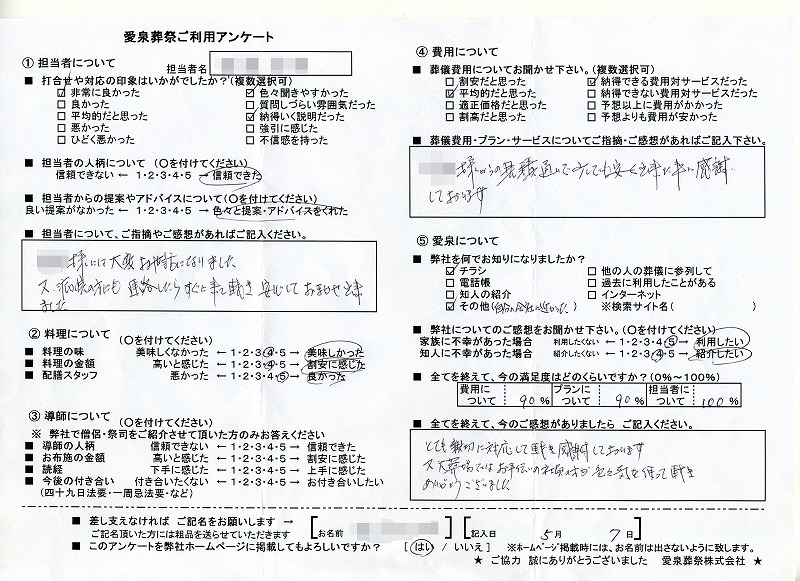 愛泉葬祭ご利用アンケート
① 担当者について
担当者名
■ 打合せや対応の印象はいかがでしたか?(複数選択可)
☑ 非常に良かった ☑ 色々聞きやすかった
□ 良かった □ 質問しづらい雰囲気だった
□ 平均的だと思った ☑ 納得いく説明だった
□ 悪かった □ 強引に感じた
□ ひどく悪かった □ 不信感を持った
■ 担当者の人柄について (〇を付けてください)
信頼できない ← 1・2・3・4・5 → 信頼できた
■ 担当者からの提案やアドバイスについて(〇を付けてください)
良い提案がなかった ← 1・2・3・4・5 → 色々と提案・アドバイスをくれた
■ 担当者について、ご指摘やご感想があればご記入ください。
様には大変お世話になりました
又、派遣の方にも 連絡したらすぐに来て頂き 安心しておまかせ出来
ました
② 料理について (〇を付けてください)
■ 料理の味 美味しくなかった ← 1・2・3・4・5 → 美味しかった
■ 料理の金額 高いと感じた ← 1・2・3・4・5 → 割安に感じた
■ 配膳スタッフ 悪かった ← 1・2・3・4・5 → 良かった
③ 導師について (〇を付けてください)
※ 弊社で僧侶・祭司をご紹介させて頂いた方のみお答えください
■ 導師の人柄 信頼できない ← 1・2・3・4・5 → 信頼できた
■ お布施の金額 高いと感じた ← 1・2・3・4・5 → 割安に感じた
■ 読経 下手に感じた ← 1・2・3・4・5 → 上手に感じた
■ 今後の付き合い 付き合いたくない ← 1・2・3・4・5 → お付き合いしたい
(四十九日法要・一周忌法要・など)
④ 費用について
■ 葬儀費用についてお聞かせ下さい。(複数選択可)
□ 割安だと思った ☑ 納得できる費用対サービスだった
☑ 平均的だと思った □ 納得できない費用対サービスだった
□ 適正価格だと思った □ 予想以上に費用がかかった
□ 割高だと思った □ 予想よりも費用が安かった
■ 葬儀費用・プラン・サービスについてご指摘・ご感想があればご記入下さい。
様からの見積通りで少しでも安く出来た事に感謝
しております
⑤ 愛泉について
■ 弊社を何でお知りになりましたか?
☑ チラシ □ 他の人の葬儀に参列して
□ 電話帳 □ 過去に利用したことがある
□ 知人の紹介 □ インターネット
☑ その他(自分の会社に近かった) ※検索サイト名( )
■ 弊社についてのご感想をお聞かせ下さい。(〇を付けてください)
家族に不幸があった場合 利用したくない ← 1・2・3・4・5 → 利用したい
知人に不幸があった場合 紹介したくない ← 1・2・3・4・5 → 紹介したい
■ 全てを終えて、今の満足度はどのくらいですか?(0%~100%)
費用について 90% プランについて 90% 担当者について 100%
■ 全てを終えて、今のご感想がありましたら ご記入ください。
とても親切に対応して頂き感謝しております
又、火葬場ではお手伝いの社員の方が色々気を使って頂き
ありがとうございました
■ 差し支えなければ ご記名をお願いします → [お名前 ] [記入日 5月 7日]
ご記名頂いた方には粗品を送らせていただきます
■ このアンケートを弊社ホームページに掲載してもよろしいですか? [ はい / いいえ ] ※ホームページ掲載時には、お名前は出さないように致します。
★ ご協力 誠にありがとうございました 愛泉葬祭株式会社 ★